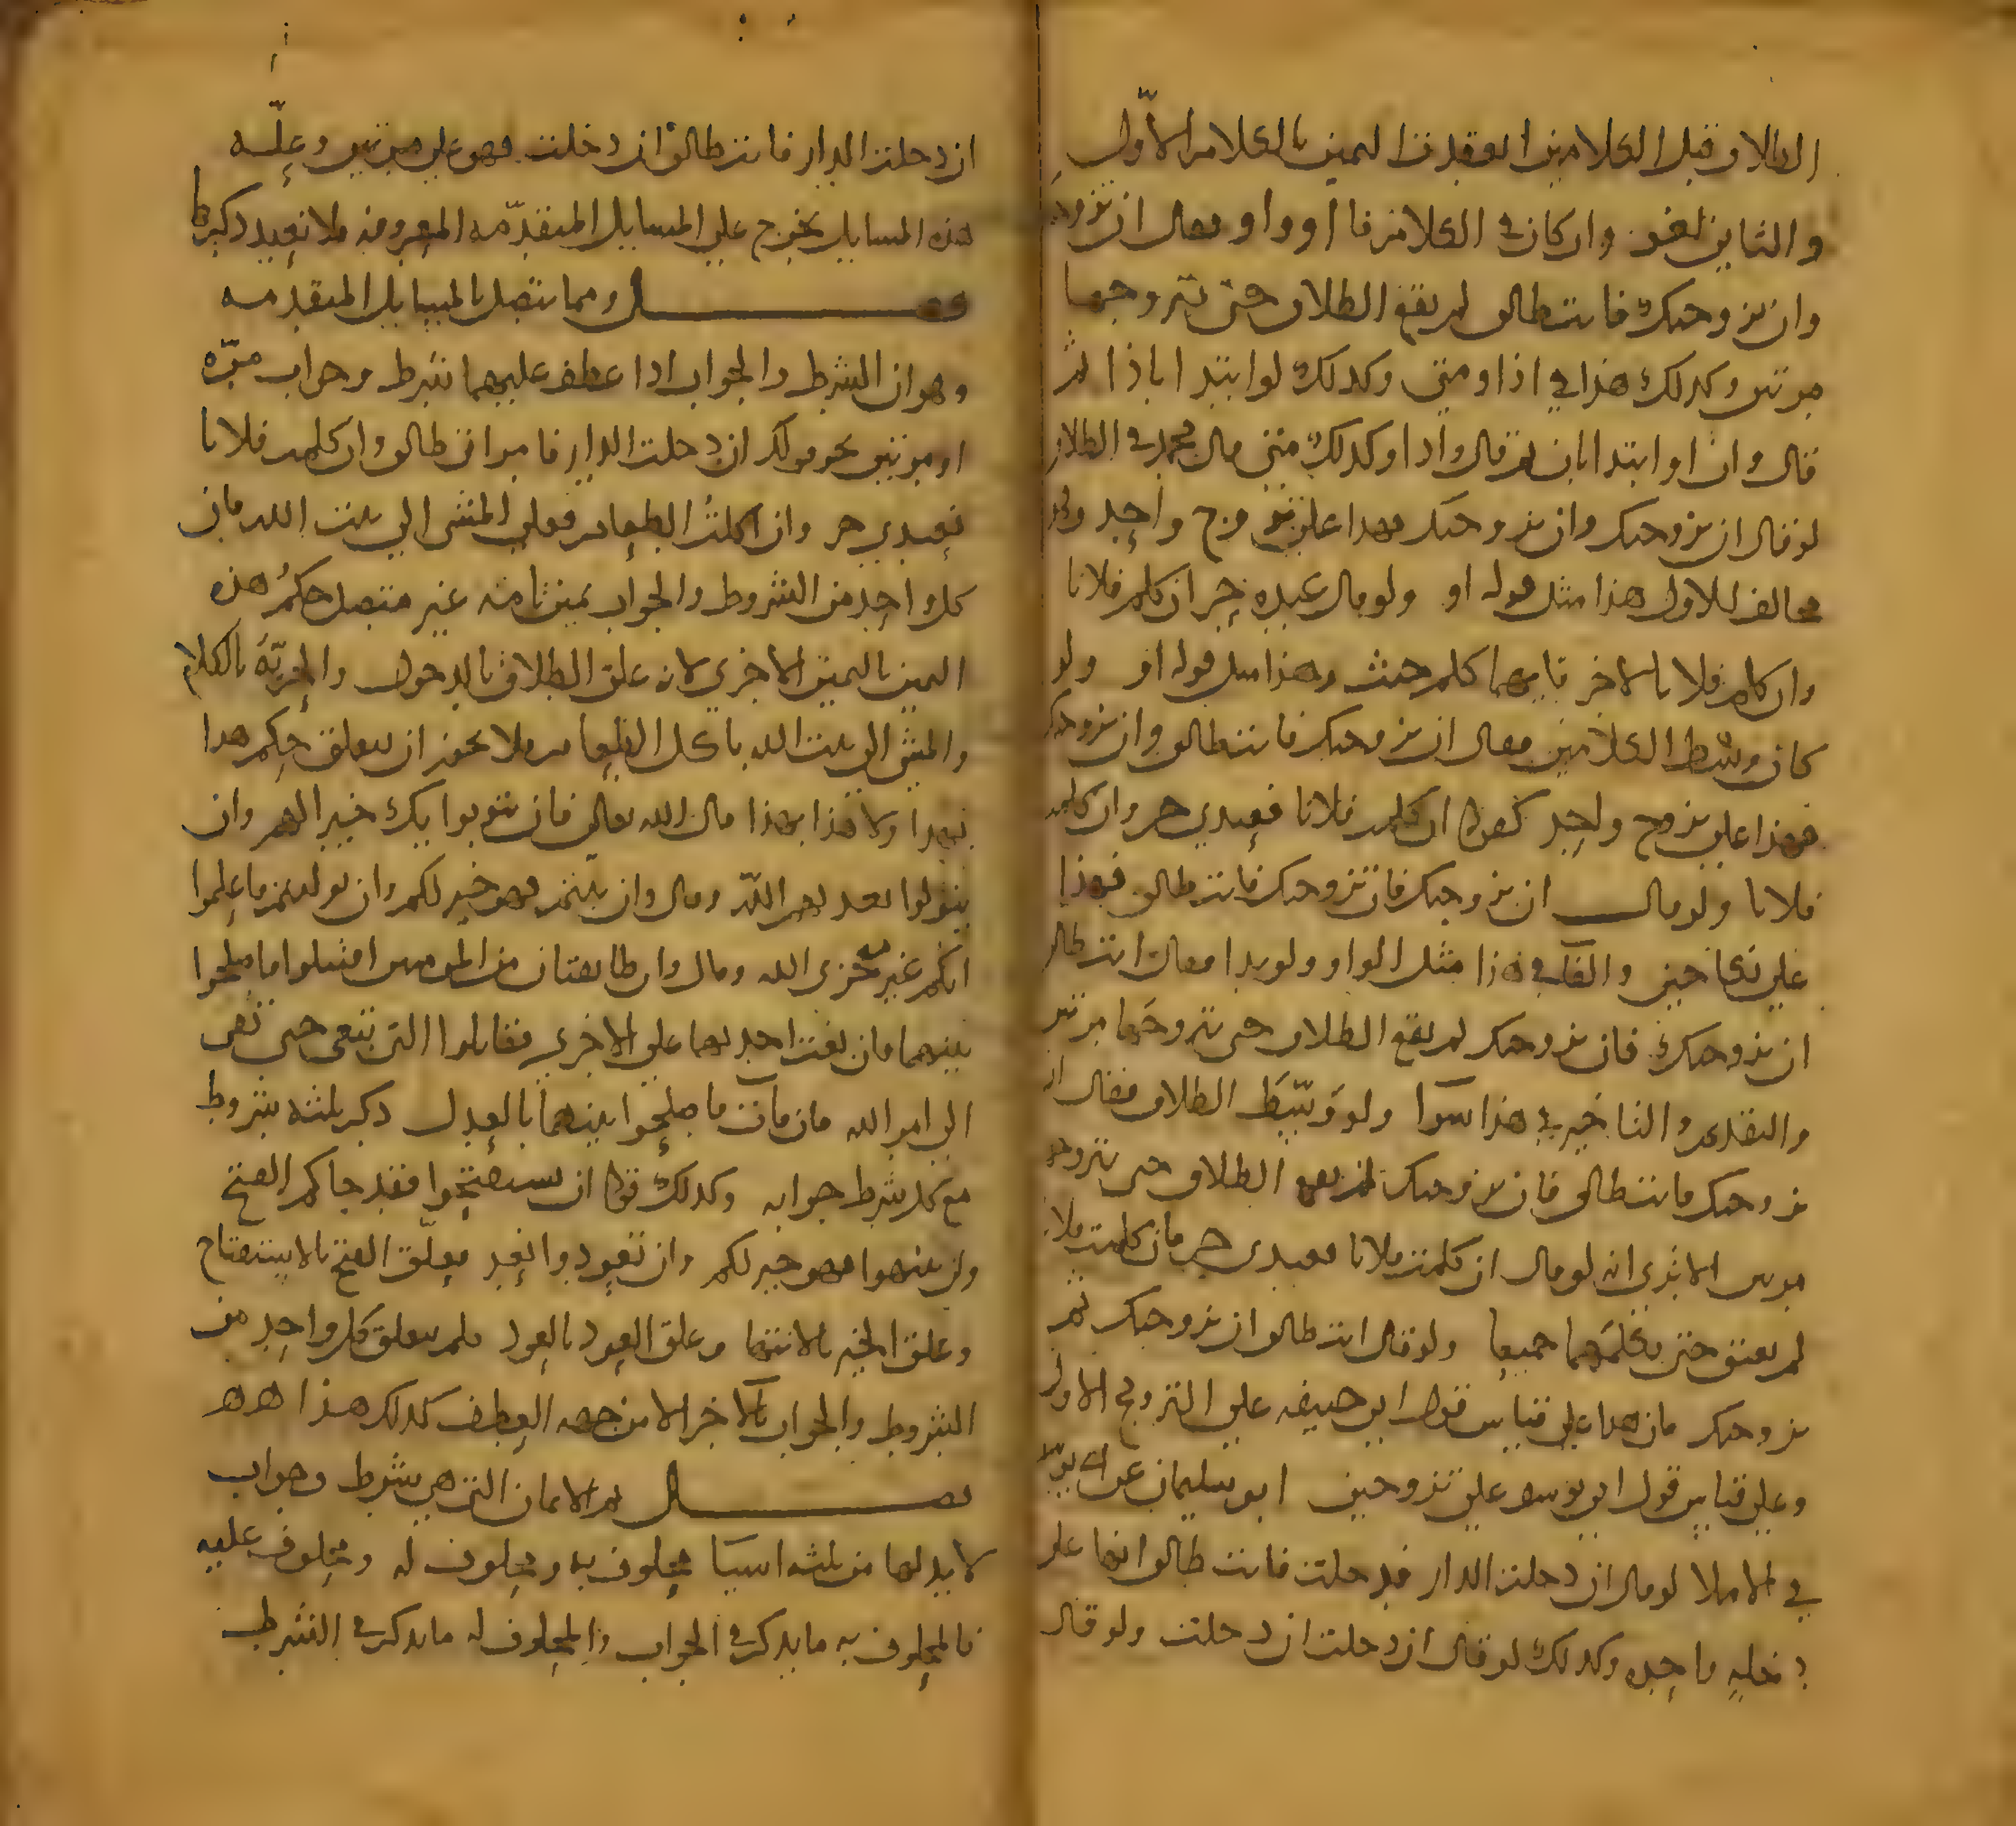 الطلاق قبل الكلامين انعقدت اليمين بالكلام الاوّل
والثاني لغو وان كان في الكلام فا او واو فقال ان تزوجتك
وان تزوجتك فانت طالق لم يقع الطلاق حتى يتزوجها
مرتين وكذلك هذا في اذا ومتى وكذلك لو ابتدا باذا ثم
قال وان او ابتدا بان ثم قال واذا وكذلك متى قال محمد في الطلاق
لو قال ان تزوجتك وان تزوجتك فهذا على تزوج واحد
مخالف للاول هذا مثل قوله او ولو قال عبده حر ان كلم فلانا
وان كلم فلانا لاخر فايهما كلم حنث وهذا مثل قوله او ولو
كان وسط الكلامين فقال ان تزوجتك فانت طالق وان تزوجتك
فهذا على تزوج واحد كقوله ان كلمت فلانا فعبدي حر وان كلمت
فلانا ولو قال ان تزوجتك فان تزوجتك فانت طالق فهذا
على نكاحين والفآ في هذا مثل الواو ولو بدا فقال انت طالق
ان تزوجتك فان تزوجتك لم يقع الطلاق حتى يتزوجها مرتين
والتقديم والتاخير في هذا سوآ ولو وسّط الطلاق فقال ان
تزوجتك فانت طالق فان تزوجتك لم يقع الطلاق حتى يتزوج
مرتين الا ترى انه لو قال ان كلمت فلانا فعبدي حر فان كلمت فلانا
لم يعتق حتى يكلمهما جميعا ولو قال انت طالق ان تزوجتك ثم
تزوجتك فان هذا على قياس قول ابي حنيفه على التزوج الاول
وعلى قياس قول ابي يوسف على تزوجين ابو سليمان عن ابي يوسف
في الاملا لو قال ان دخلت الدار فدخلت فانت طالق انها على
دخله واحده وكذلك لو قال ان دخلت ان دخلت ولو قال
ان دخلت الدار فانت طالق ان دخلت فهو على مرتين وعلّه
هذه المسايل يخرج على المسايل المتقدّمه المعروفه فلا نعيد ذكرها
فصل ومما يتصل بالمسايل المتقدمه
وهو ان الشرط والجواب اذا عطف عليهما شرط وجواب مرّه
او مرتين نحو قولك ان دخلت الدار فامراتي طالق وان كلمت فلانا
فعبدي حر وان اكلتُ الطعام فعلي المشي الى بيت الله فان
كل واحد من الشروط والجواب يمين تامه غير متصل حكمُ هذه
اليمين باليمين الاخرى لانه علق الطلاق بالدخول والحريّه بالكلام
والمشي الى بيت الله باكل الطعام فلا يجوز ان يتعلق حكم هذا
بهذا ولا هذا بهذا قال الله تعالى فان يتوبوا يك خيرا لهم وان
يتولوا يعذبهم اللّه وقال وان تبتم فهو خير لكم وان توليتم فاعلموا
انكم غير معجزي الله وقال وان طايفتان من المومنين اقتتلوا فاصلحوا
بينهما فان بغت احديهما على الاخرى فقاتلوا التي تبغي حتى تفى
الى امر الله فان فآت فاصلحوا بينهما بالعدل ذكر ثلثه شروط
مع كل شرط جوابه وكذلك قوله ان تستفتحوا فقد جاكم الفتح
وان تنتهوا فهو خير لكم وان تعودوا نعد فعلّق الفتح بالاستفتاح
وعلق الخير بالانتها وعلق العود بالعود فلم يتعلق كل واحد من
الشروط والجواب بالآخر الا من جهه العطف كذلك هذا هه
فصل ثم الايمان التي هي شرط وجواب
لا بد لها من ثلثه اشيا محلوف به ومحلوف له ومحلوف عليه
فالمحلوف به ما يذكر في الجواب والمحلوف له ما يذكر في الشرط